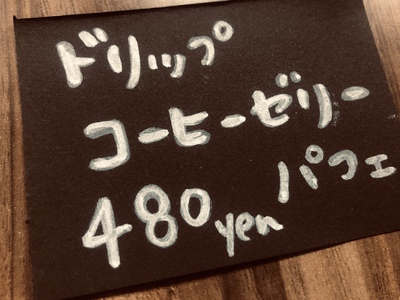 ドリップ
コーヒーゼリー
パフェ
480yen